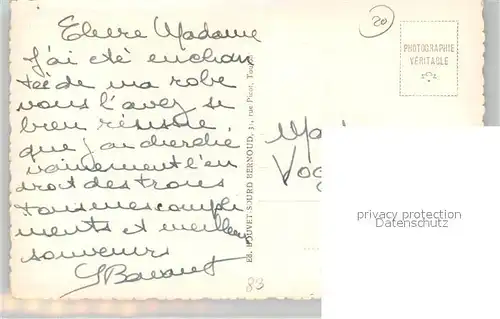 Chère Madame
J'ai été enchan
tée de ma robe
vous l'avez si
bien réussie
que j'ai cherché
vainement l'en
droit des trous
tous mes compli
ments et meilleurs
souvenirs
20
PHOTOGRAPHIE
VÉRITABLE
ED. BOUVET SOURD BERNOUD, 31, rue Picot, Toulon
83
privacy protection
Datenschutz